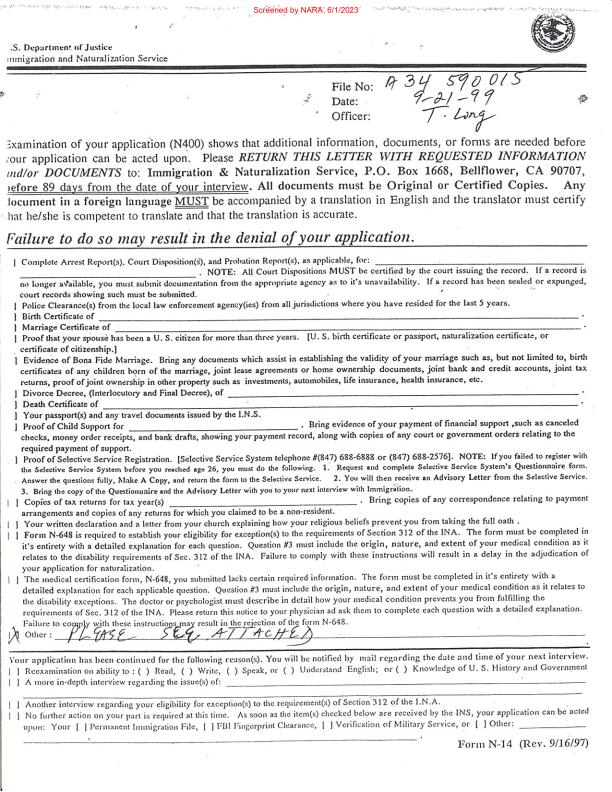 Screened by NARA, 6/1/2023
.S. Department of Justice
mmigration and Naturalization Service
File No: A 34 590 015
Date: 9-21-99
Officer: T. Long
Examination of your application (N400) shows that additional information, documents, or forms are needed before
your application can be acted upon. Please RETURN THIS LETTER WITH REQUESTED INFORMATION
and/or DOCUMENTS to: Immigration & Naturalization Service, P.O. Box 1668, Bellflower, CA 90707,
before 89 days from the date of your interview. All documents must be Original or Certified Copies. Any
document in a foreign language MUST be accompanied by a translation in English and the translator must certify
hat he/she is competent to translate and that the translation is accurate.
Failure to do so may result in the denial of your application.
] Complete Arrest Report(s), Court Disposition(s), and Probation Report(s), as applicable, for:
. NOTE: All Court Dispositions MUST be certified by the court issuing the record. If a record is
no longer available, you must submit documentation from the appropriate agency as to it's unavailability. If a record has been sealed or expunged,
court records showing such must be submitted.
] Police Clearance(s) from the local law enforcement agency(ies) from all jurisdictions where you have resided for the last 5 years.
] Birth Certificate of .
] Marriage Certificate of .
] Proof that your spouse has been a U. S. citizen for more than three years. [U. S. birth certificate or passport, naturalization certificate, or
certificate of citizenship.]
] Evidence of Bona Fide Marriage. Bring any documents which assist in establishing the validity of your marriage such as, but not limited to, birth
certificates of any children born of the marriage, joint lease agreements or home ownership documents, joint bank and credit accounts, joint tax
returns, proof of joint ownership in other property such as investments, automobiles, life insurance, health insurance, etc.
] Divorce Decree, (Interlocutory and Final Decree), of .
] Death Certificate of .
] Your passport(s) and any travel documents issued by the I.N.S.
] Proof of Child Support for . Bring evidence of your payment of financial support ,such as canceled
checks, money order receipts, and bank drafts, showing your payment record, along with copies of any court or government orders relating to the
required payment of support.
] Proof of Selective Service Registration. [Selective Service System telephone #(847) 688-6888 or (847) 688-2576]. NOTE: If you failed to register with
the Selective Service System before you reached age 26, you must do the following. 1. Request and complete Selective Service System's Questionnaire form.
Answer the questions fully, Make A Copy, and return the form to the Selective Service. 2. You will then receive an Advisory Letter from the Selective Service.
3. Bring the copy of the Questionnaire and the Advisory Letter with you to your next interview with Immigration.
[ ] Copies of tax returns for tax year(s) . Bring copies of any correspondence relating to payment
arrangements and copies of any returns for which you claimed to be a non-resident.
[ ] Your written declaration and a letter from your church explaining how your religious beliefs prevent you from taking the full oath .
[ ] Form N-648 is required to establish your eligibility for exception(s) to the requirements of Section 312 of the INA. The form must be completed in
it's entirety with a detailed explanation for each question. Question #3 must include the origin, nature, and extent of your medical condition as it
relates to the disability requirements of Sec. 312 of the INA. Failure to comply with these instructions will result in a delay in the adjudication of
your application for naturalization.
[ ] The medical certification form, N-648, you submitted lacks certain required information. The form must be completed in it's entirety with a
detailed explanation for each applicable question. Question #3 must include the origin, nature, and extent of your medical condition as it relates to
the disability exceptions. The doctor or psychologist must describe in detail how your medical condition prevents you from fulfilling the
requirements of Sec. 312 of the INA. Please return this notice to your physician ad ask them to complete each question with a detailed explanation.
Failure to comply with these instructions may result in the rejection of the form N-648.
[X] Other : PLEASE SEE ATTACHED
Your application has been continued for the following reason(s). You will be notified by mail regarding the date and time of your next interview.
[ ] Reexamination on ability to : ( ) Read, ( ) Write, ( ) Speak, or ( ) Understand English; or ( ) Knowledge of U. S. History and Government
[ ] A more in-depth interview regarding the issue(s) of:
[ ] Another interview regarding your eligibility for exception(s) to the requirement(s) of Section 312 of the I.N.A.
[ ] No further action on your part is required at this time. As soon as the item(s) checked below are received by the INS, your application can be acted
upon: Your [ ] Permanent Immigration File, [ ] FBI Fingerprint Clearance, [ ] Verification of Military Service, or [ ] Other:
Form N-14 (Rev. 9/16/97)